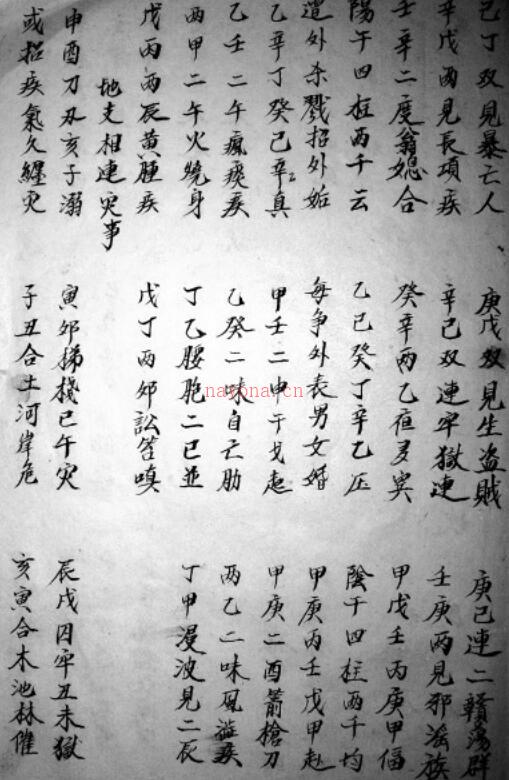 己丁双見暴亡人 庚戊双見生盜賊 庚己連二贛蕩群
辛戊两見長項疾 辛己双連牢獄連 壬庚两見邪滛族
壬辛二度翁媳合 癸辛两乙夜多寞 甲戊壬丙庚甲偪
陽午四柱两千云 乙己癸丁辛乙压 陰干四柱两千均
遣外杀戮招外妬 每争外表男女婚 甲庚丙壬戊甲赴
乙辛丁癸己辛真 甲壬二申干戈起 甲庚二酉箭槍刀
乙壬二午瘋痰疾 乙癸二味自亡肋 两乙二味風疾
两甲二午火燒身 丁乙腰胞二巳並 丁甲漫波見二辰
戊丙两辰黄腫疾 戊丁两夘訟笞嗔
地支相連灾事
申酉刀刃亥子溺 寅夘梯棧巳午灾 辰戌囚牢丑未獄
或招疾氣久纏灾 子丑合土河岸危 亥寅合木池林催
nayona.cn